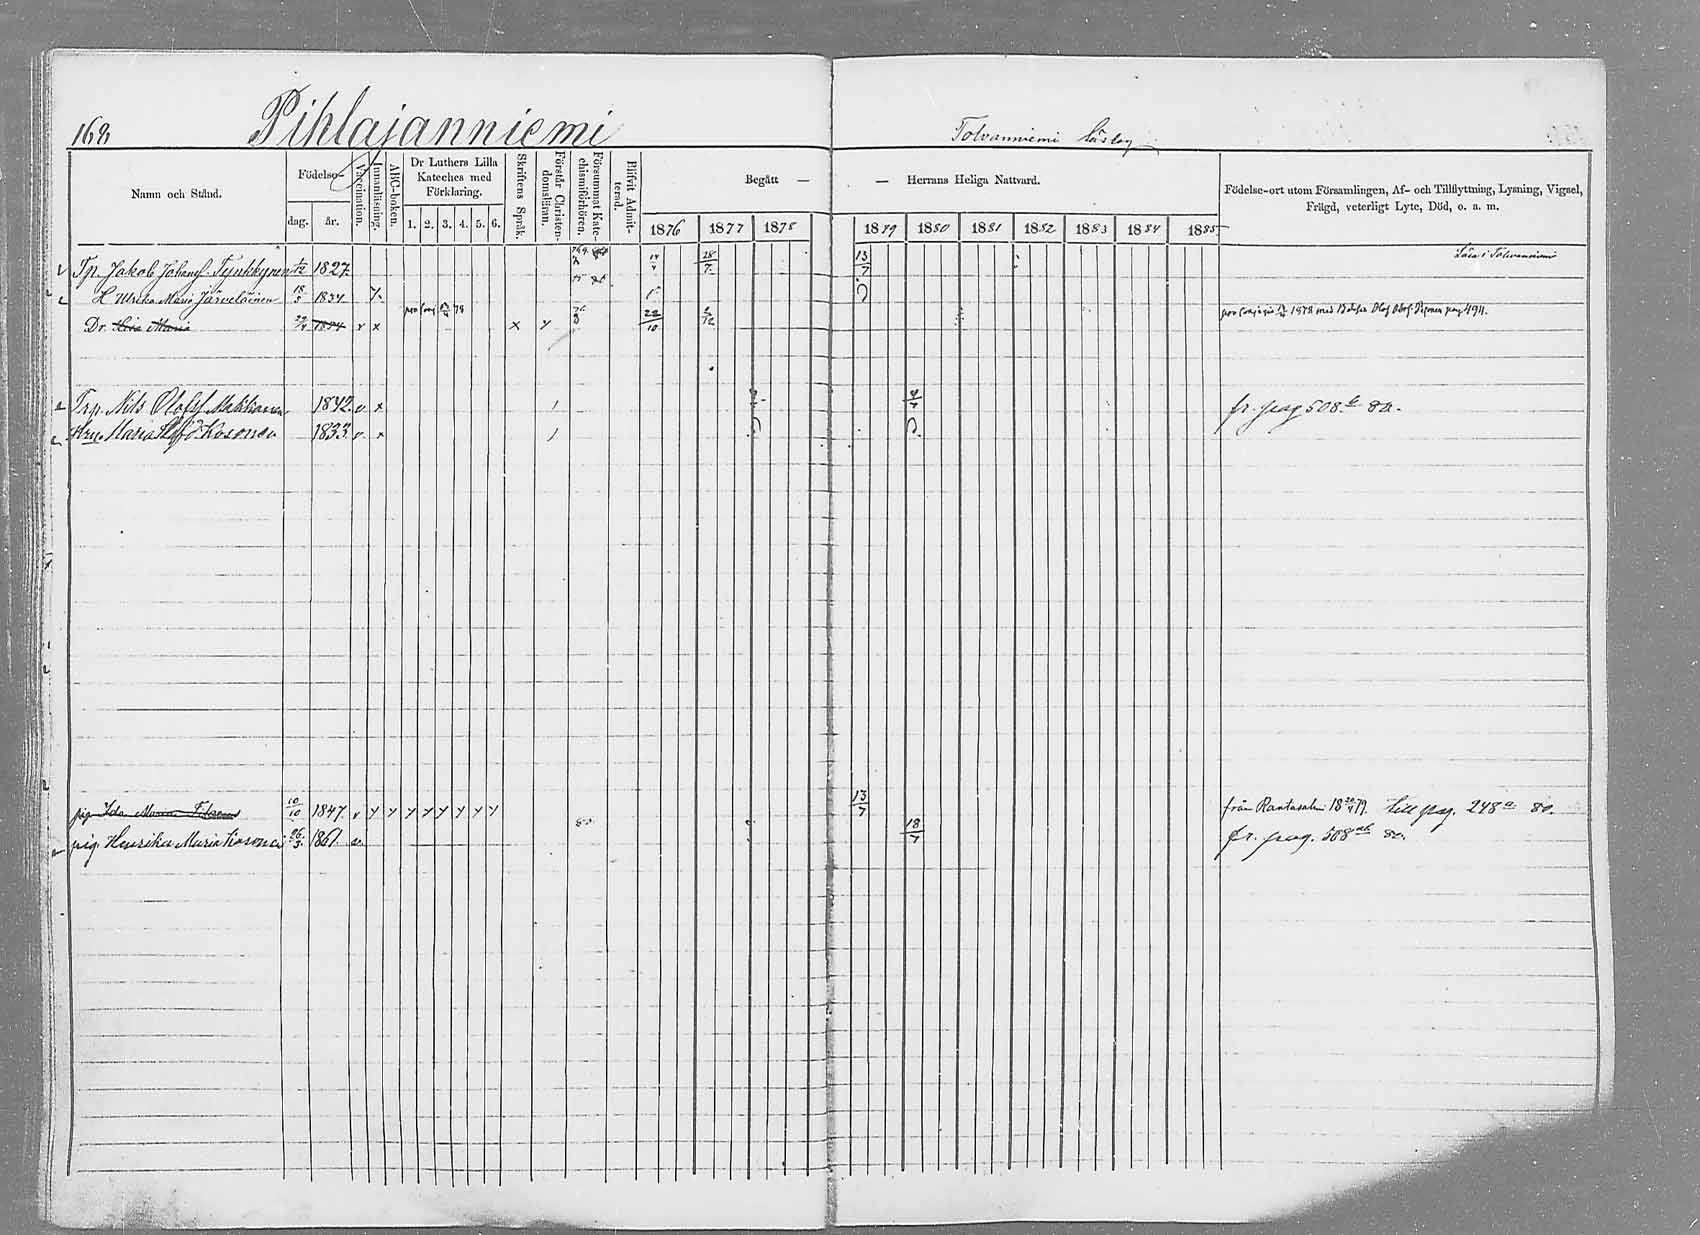 168
Pihlajanniemi
Tolvanniemi
Namn och Stånd.
Födelse-
dag. år.
Vaccination.
Innanläsning.
ABC-boken.
Dr Luthers Lilla
Kateches med
Förklaring.
1. 2. 3. 4. 5. 6.
Skriftens Språk.
Förstår Christen-
domsläran.
Försummat Kate-
chismiförhören.
Blifvit Admit-
terad.
Begått — — Herrans Heliga Nattvard.
1876 1877 1878 1879 1880 1881 1882 1883 1884 1885
Födelse-ort utom Församlingen, Af- och Tillflyttning, Lysning, Vigsel,
Frägd, veterligt Lyte, Död, o. a. m.
Tp. Jakob Johansf. Tynkkynen 1827. 28/7 13/7 i Tolvanniemi
H Ulrika Maria Järveläinen 18/3 1834
Dr. Maria 1854 x x x 22/10 1878 med Olof Olofs. pag 494.
Trp. Nils Olofsf Makkonen 1842. v x fr. pag 508 80.
Maria Kosonen 1833. v. x
pig Ida Maria 10/10 1847. v 13/7 från Rantasalmi 18 79. till pag. 248 a 80.
pig. Henrika Maria Kosonen 26/3. 1861. v. 18/7 fr. pag. 508 80.